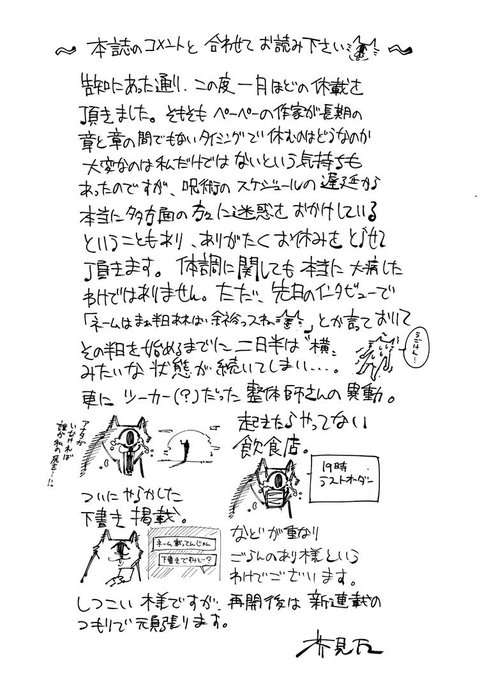 〜 本誌のコメントと合わせてお読み下さい 〜
告知にあった通り、この度一月ほどの休載を
頂きました。そもそもペーペーの作家が長期の
章と章の間でもないタイミングで休むのはどうなのか
大変なのは私だけではないという気持ちも
あったのですが、呪術のスケジュールの遅延から
本当に多方面の方々に迷惑をおかけしている
ということもあり、ありがたくお休みをとらせて
頂きます。体調に関しても本当に大病した
わけではありません。ただ、先日のインタビューで
「ネームはまぁ半日あれば余裕っスね」とか言っておいて
その半日を始めるまでに二日半は"横"
みたいな状態が続いてしまい…。
うごけん…
更にツーカー(?)だった整体師さんの異動。
アナタが
いなければ
誰が私の
起きたらやってない
飲食店。
19時
ラストオーダー
ついにやらかした
下書き掲載。
ネーム載ってんじゃん
下書きでわりー?
などが重なり
ごらんのあり様という
わけでございます。
しつこい様ですが、再開後は新連載の
つもりで頑張ります。
芥見下々